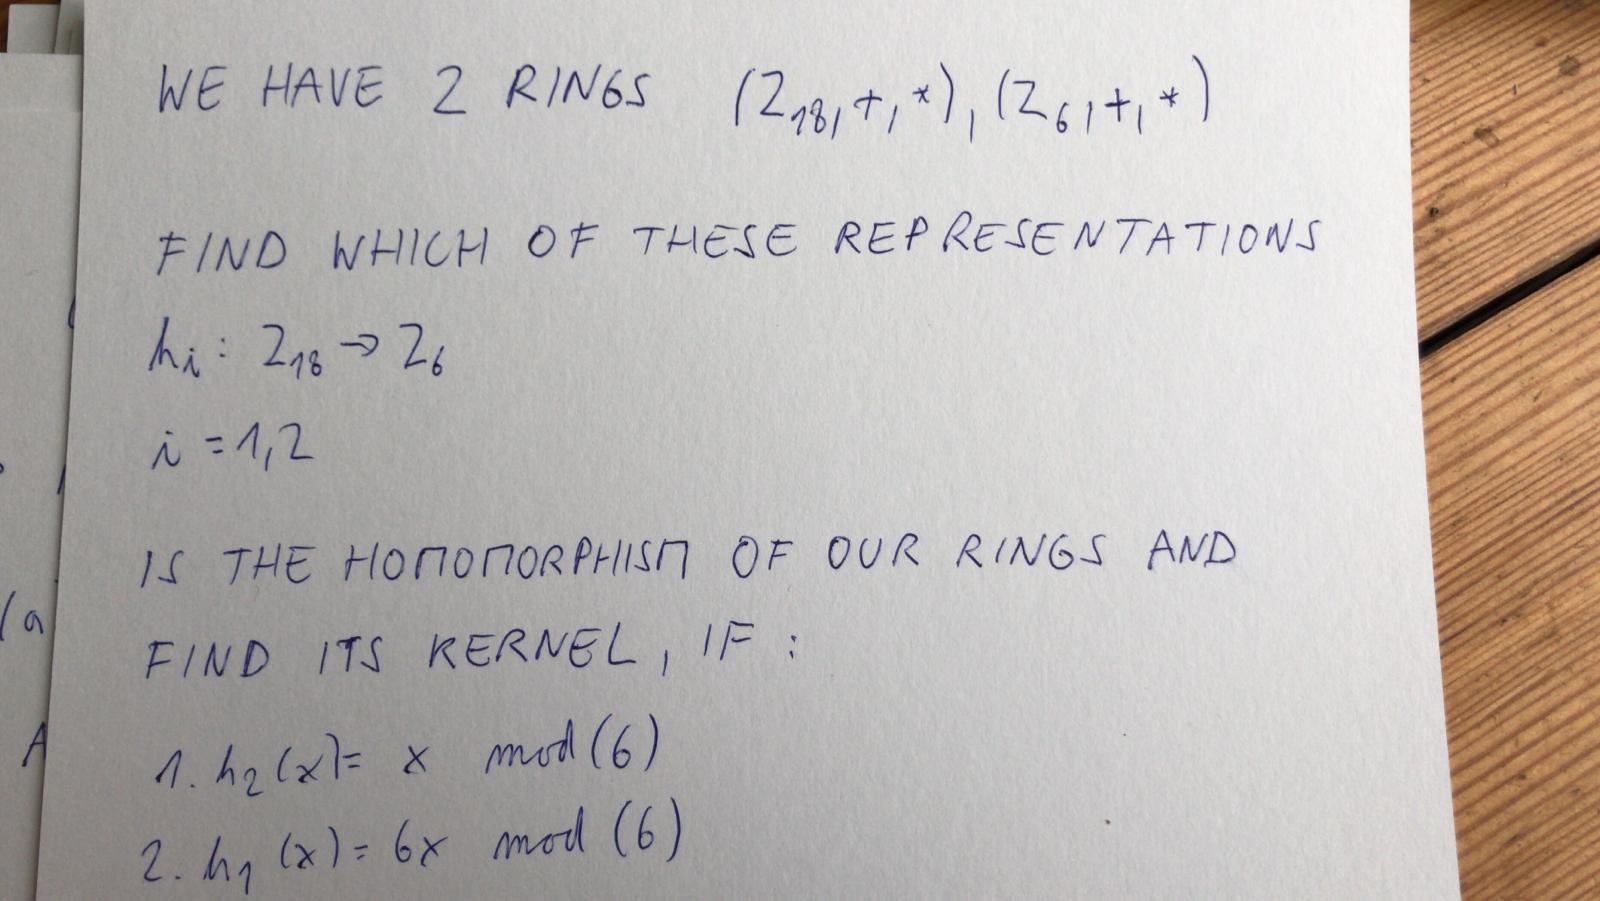 WE HAVE 2 RINGS (Z₁₈,+,*), (Z₆,+,*)
FIND WHICH OF THESE REPRESENTATIONS
hᵢ: Z₁₈ → Z₆
i = 1,2
IS THE HOMOMORPHISM OF OUR RINGS AND
FIND ITS KERNEL, IF :
1. h₂(x)= x mod(6)
2. h₁(x)= 6x mod(6)
(a
A